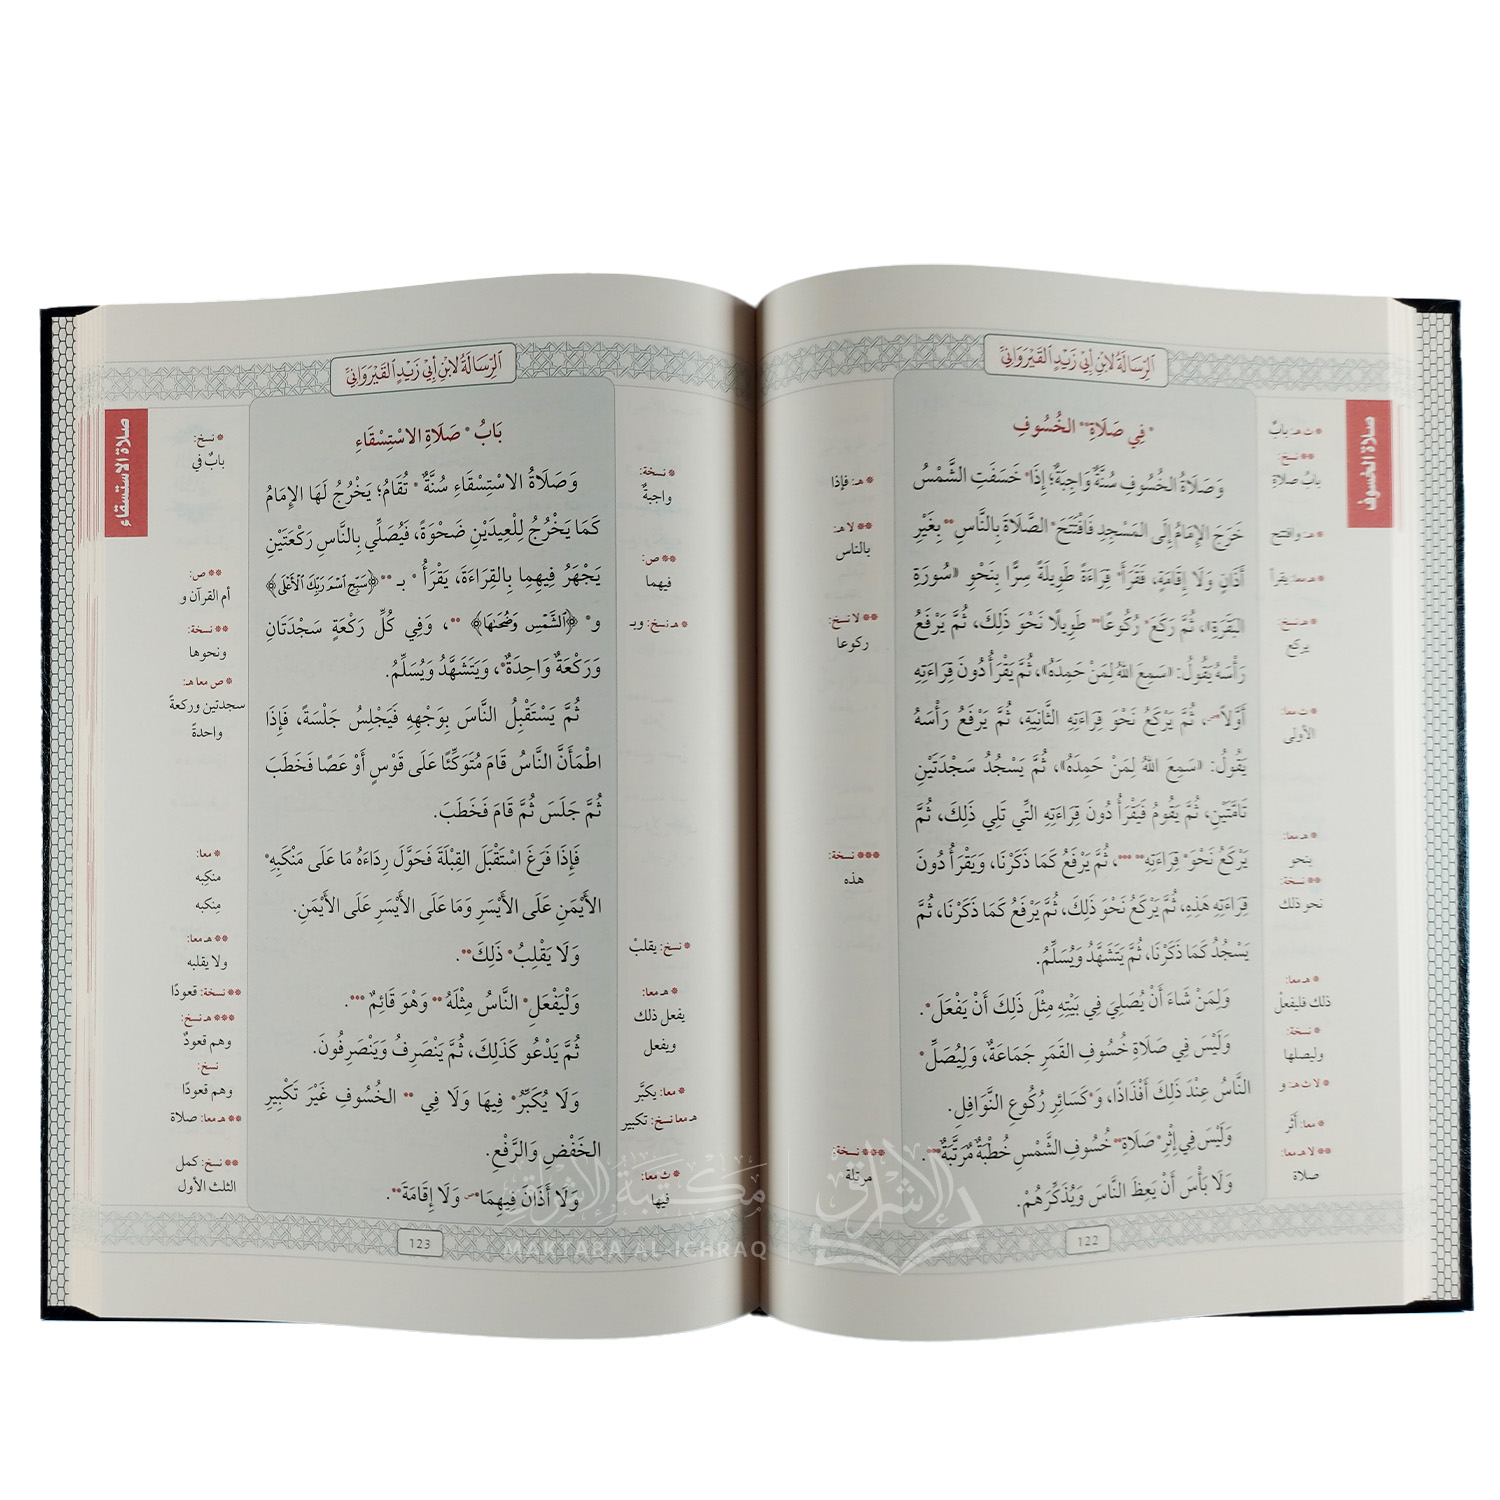 الرِّسَالَةُ لِابْنِ أَبِي زَيْدٍ القَيْرَوَانِيِّ
صلاة الخسوف
* فِي صَلَاةِ** الخُسُوفِ
وَصَلَاةُ الخُسُوفِ سُنَّةٌ وَاجِبَةٌ؛ إِذَا* خَسَفَتِ الشَّمْسُ
خَرَجَ الإِمَامُ إِلَى المَسْجِدِ فَافْتَتَحَ* الصَّلَاةَ بِالنَّاسِ** بِغَيْرِ
أَذَانٍ وَلَا إِقَامَةٍ، فَقَرَأَ* قِرَاءَةً طَوِيلَةً سِرًّا بِنَحْوِ «سُورَةِ
البَقَرَةِ»، ثُمَّ رَكَعَ* رُكُوعًا** طَوِيلًا نَحْوَ ذَلِكَ، ثُمَّ يَرْفَعُ
رَأْسَهُ يَقُولُ: «سَمِعَ اللهُ لِمَنْ حَمِدَهُ»، ثُمَّ يَقْرَأُ دُونَ قِرَاءَتِهِ
أَوَّلًا*، ثُمَّ يَرْكَعُ نَحْوَ قِرَاءَتِهِ الثَّانِيَةِ، ثُمَّ يَرْفَعُ رَأْسَهُ
يَقُولُ: «سَمِعَ اللهُ لِمَنْ حَمِدَهُ»، ثُمَّ يَسْجُدُ سَجْدَتَيْنِ
تَامَّتَيْنِ، ثُمَّ يَقُومُ فَيَقْرَأُ دُونَ قِرَاءَتِهِ الَّتِي تَلِي ذَلِكَ، ثُمَّ
يَرْكَعُ نَحْوَ* قِرَاءَتِهِ** ***، ثُمَّ يَرْفَعُ كَمَا ذَكَرْنَا، وَيَقْرَأُ دُونَ
قِرَاءَتِهِ هَذِهِ، ثُمَّ يَرْكَعُ نَحْوَ ذَلِكَ، ثُمَّ يَرْفَعُ كَمَا ذَكَرْنَا، ثُمَّ
يَسْجُدُ كَمَا ذَكَرْنَا، ثُمَّ يَتَشَهَّدُ وَيُسَلِّمُ.
وَلِمَنْ شَاءَ أَنْ يُصَلِّيَ فِي بَيْتِهِ مِثْلَ ذَلِكَ أَنْ يَفْعَلَ*.
وَلَيْسَ فِي صَلَاةِ خُسُوفِ القَمَرِ جَمَاعَةٌ، وَلِيُصَلِّ*
النَّاسُ عِنْدَ ذَلِكَ أَفْذَاذًا، وَ*كَسَائِرِ رُكُوعِ النَّوَافِلِ.
وَلَيْسَ فِي إِثْرِ* صَلَاةِ** خُسُوفِ الشَّمْسِ خُطْبَةٌ مُرَتَّبَةٌ***.
وَلَا بَأْسَ أَنْ يَعِظَ النَّاسَ وَيُذَكِّرَهُمْ.
* ت هـ: بابٌ
** نسخ:
بابُ صلاةِ
* هـ: وافتتح
* هـ معا: يقرأ
* هـ نسخ:
يركع
* ت معا:
الأولى
* هـ معا:
بنحو
** نسخة:
نحو ذلك
* هـ معا:
ذلك فليفعلْ
* نسخة:
وليصلها
* لا ت هـ: و
* معا: أَثَر
** لا هـ معا:
صلاة
* هـ: فإذا
** لا هـ:
بالناس
** لا نسخ:
ركوعا
*** نسخة:
هذه
*** نسخة:
مرتلة
122
الرِّسَالَةُ لِابْنِ أَبِي زَيْدٍ القَيْرَوَانِيِّ
صلاة الاستسقاء
بَابُ* صَلَاةِ الاسْتِسْقَاءِ
وَصَلَاةُ الاسْتِسْقَاءِ سُنَّةٌ* تُقَامُ؛ يَخْرُجُ لَهَا الإِمَامُ
كَمَا يَخْرُجُ لِلْعِيدَيْنِ ضَحْوَةً، فَيُصَلِّي بِالنَّاسِ رَكْعَتَيْنِ
يَجْهَرُ فِيهِمَا بِالقِرَاءَةِ، يَقْرَأُ* بـ** ﴿سَبِّحِ اسْمَ رَبِّكَ الْأَعْلَى﴾
و* ﴿الشَّمْسِ وَضُحَاهَا﴾**، وَفِي كُلِّ رَكْعَةٍ سَجْدَتَانِ
وَرَكْعَةٌ وَاحِدَةٌ*، وَيَتَشَهَّدُ وَيُسَلِّمُ.
ثُمَّ يَسْتَقْبِلُ النَّاسَ بِوَجْهِهِ فَيَجْلِسُ جَلْسَةً، فَإِذَا
اطْمَأَنَّ النَّاسُ قَامَ مُتَوَكِّئًا عَلَى قَوْسٍ أَوْ عَصًا فَخَطَبَ
ثُمَّ جَلَسَ ثُمَّ قَامَ فَخَطَبَ.
فَإِذَا فَرَغَ اسْتَقْبَلَ القِبْلَةَ فَحَوَّلَ رِدَاءَهُ مَا عَلَى مَنْكِبِهِ*
الأَيْمَنِ عَلَى الأَيْسَرِ وَمَا عَلَى الأَيْسَرِ عَلَى الأَيْمَنِ.
وَلَا يَقْلِبُ* ذَلِكَ**.
وَلْيَفْعَلِ* النَّاسُ مِثْلَهُ** وَهُوَ قَائِمٌ***.
ثُمَّ يَدْعُو كَذَلِكَ، ثُمَّ يَنْصَرِفُ وَيَنْصَرِفُونَ.
وَلَا يُكَبِّرُ* فِيهَا وَلَا فِي** الخُسُوفِ غَيْرَ تَكْبِيرِ
الخَفْضِ وَالرَّفْعِ.
وَلَا أَذَانَ فِيهِمَا* وَلَا إِقَامَةَ**.
* نسخة:
واجبةٌ
** ص:
فيهما
* هـ نسخ: وبـ
* نسخ: يقلبْ
* هـ معا:
يفعل ذلك
ويفعل
* معا: يكبَّر
هـ معا نسخ: تكبير
* ث معا:
فيها
* نسخ:
بابٌ في
** ص:
أم القرآن و
** نسخة:
ونحوها
* ص معا هـ:
سجدتين وركعةً
واحدةً
* معا:
منكبه
مِنكبه
** هـ معا:
ولا يقلبه
** نسخة: قعودًا
*** هـ نسخ:
وهم قعودٌ
نسخ:
وهم قعودًا
** هـ معا: صلاة
** نسخ: كمل
الثلث الأول
123
مكتبة الإشراق
MAKTABA AL-ICHRAQ
الإشراق